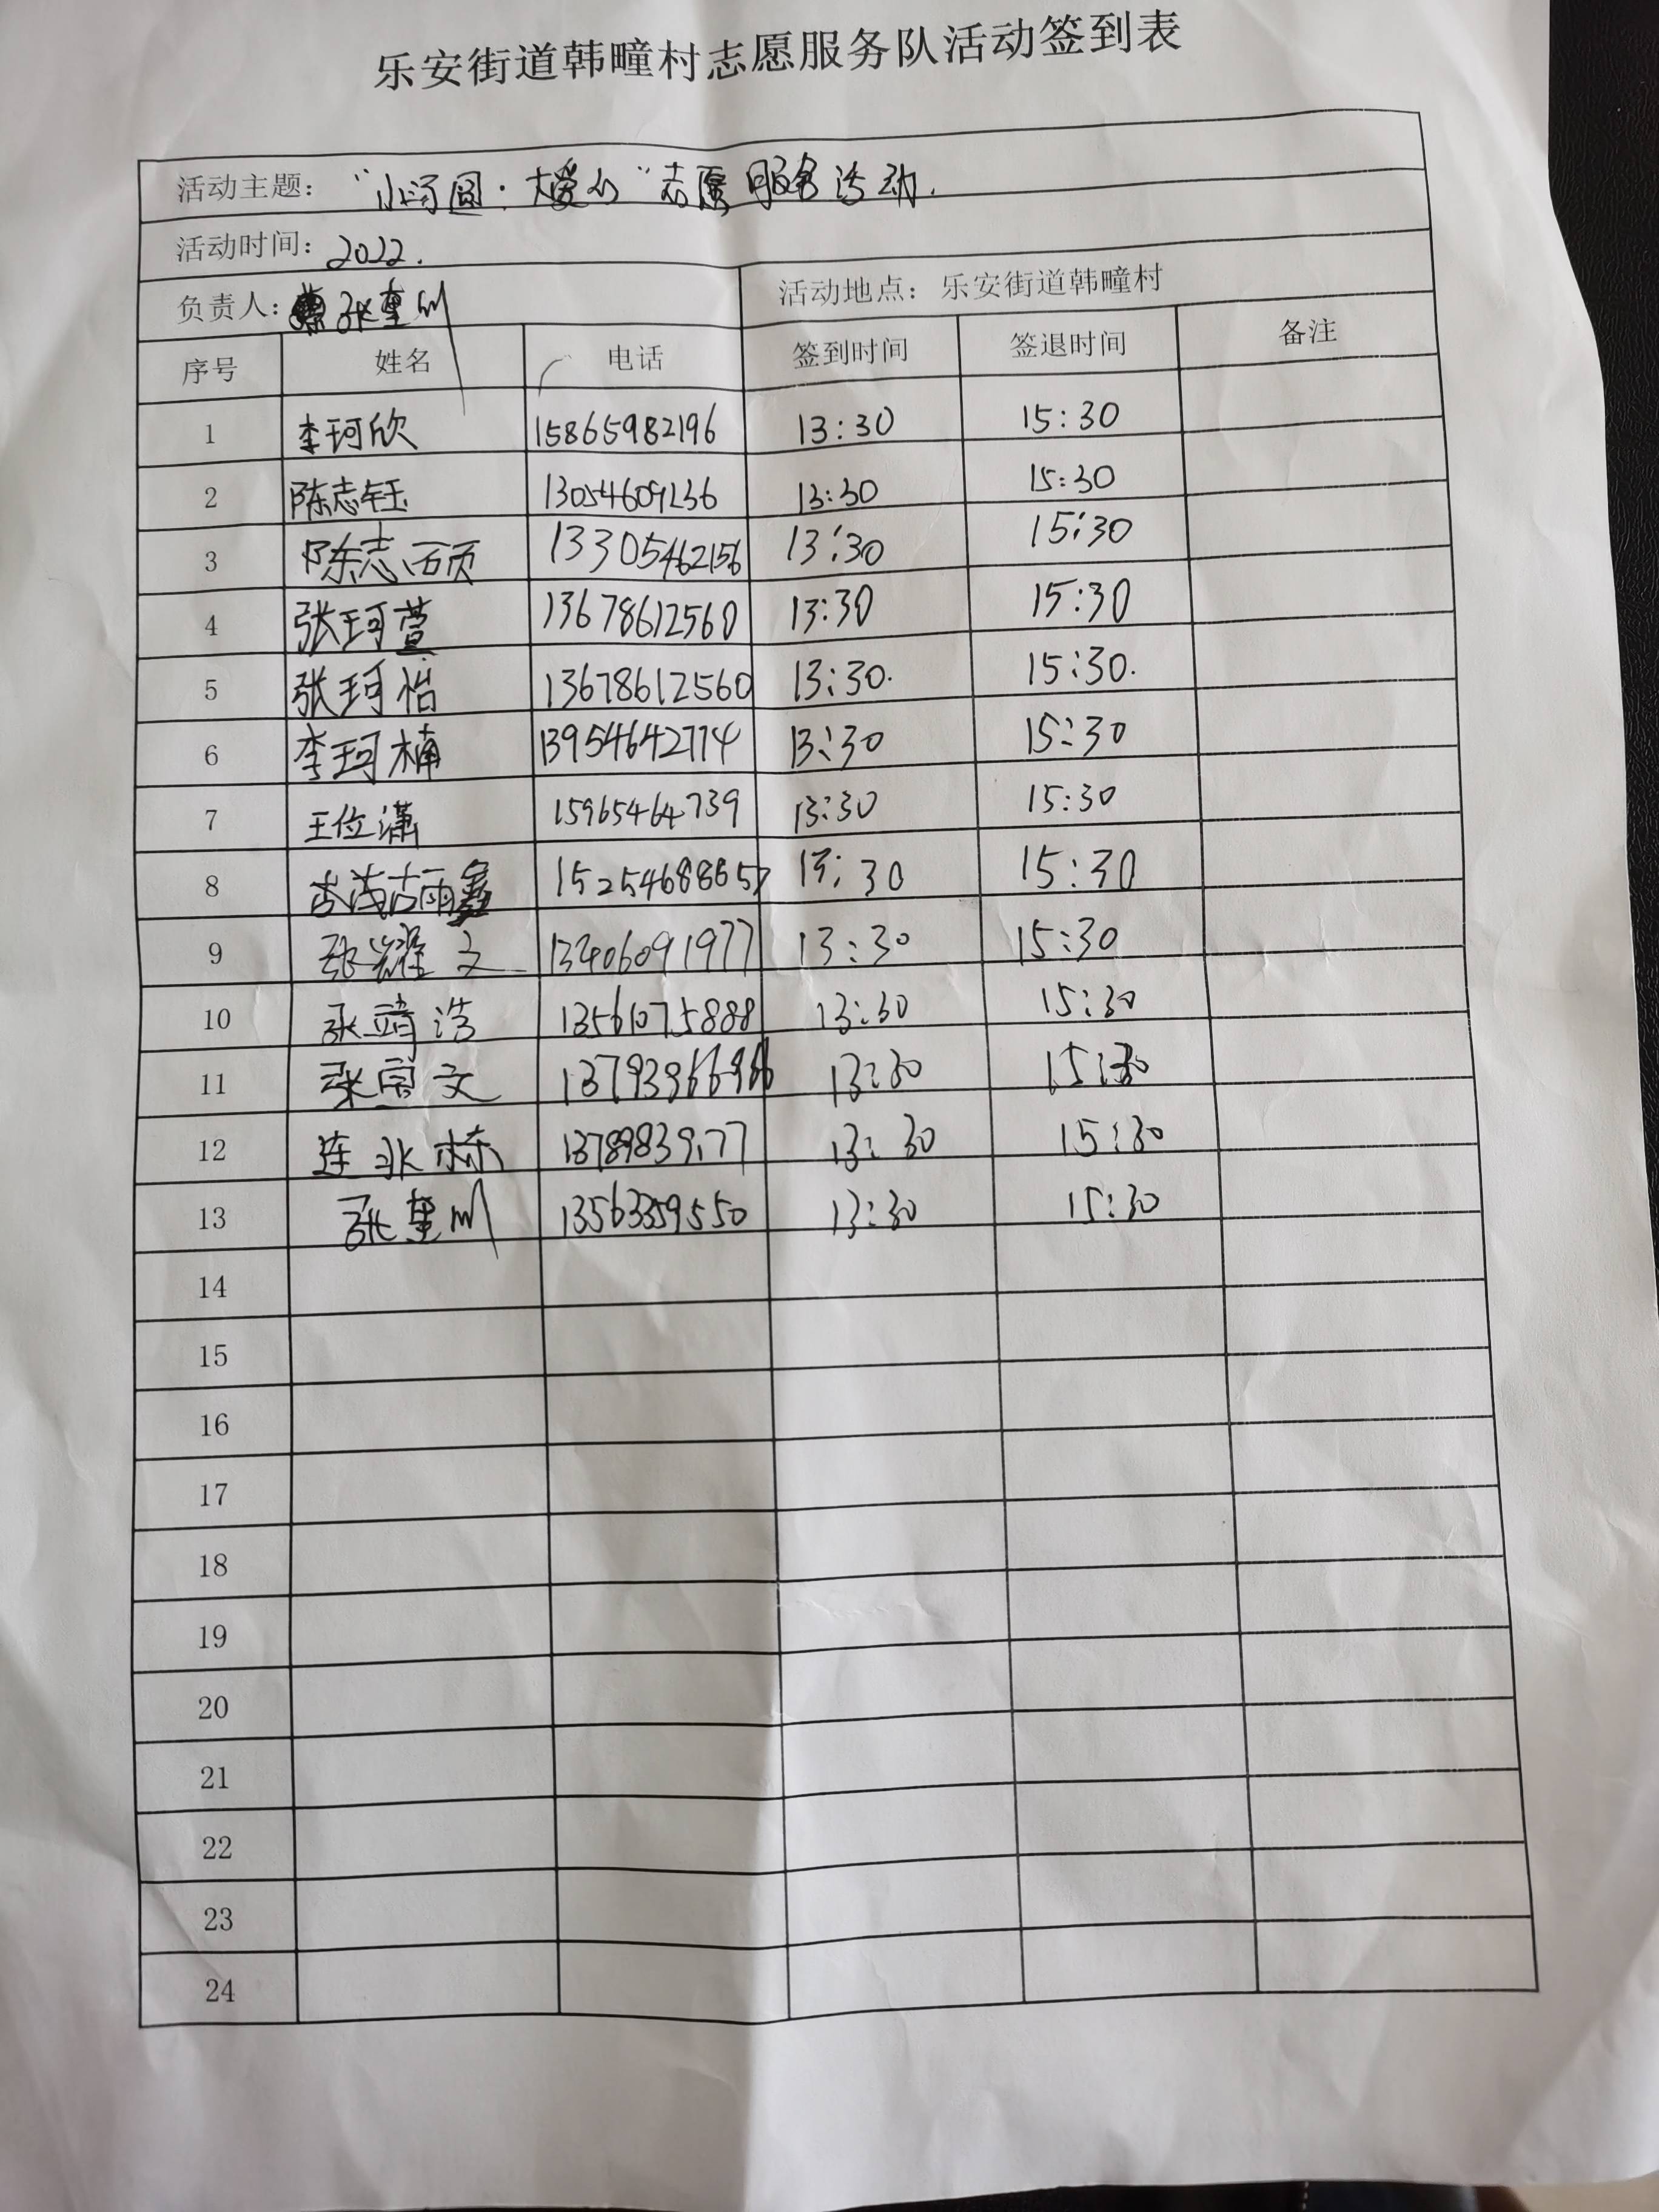 乐安街道韩疃村志愿服务队活动签到表
活动主题：“小汤圆·大爱心”志愿服务活动.
活动时间：2022.
负责人：张重川 活动地点：乐安街道韩疃村
序号 姓名 电话 签到时间 签退时间 备注
1 李珂欣 15865982196 13:30 15:30
2 陈志钰 13054609236 13:30 15:30
3 陈志硕 13305462156 13:30 15:30
4 张珂萱 13678612560 13:30 15:30
5 张珂怡 13678612560 13:30. 15:30.
6 李珂楠 13954642774 13:30 15:30
7 王位潇 15965464739 13:30 15:30
8 雨鑫 13:30 15:30
9 张耀文 13406091977 13:30 15:30
10 张靖浩 13561075888 13:30 15:30
11 13:30 15:30
12 连兆栋 13:30 15:30
13 张重川 13563359550 13:30 15:30
14
15
16
17
18
19
20
21
22
23
24